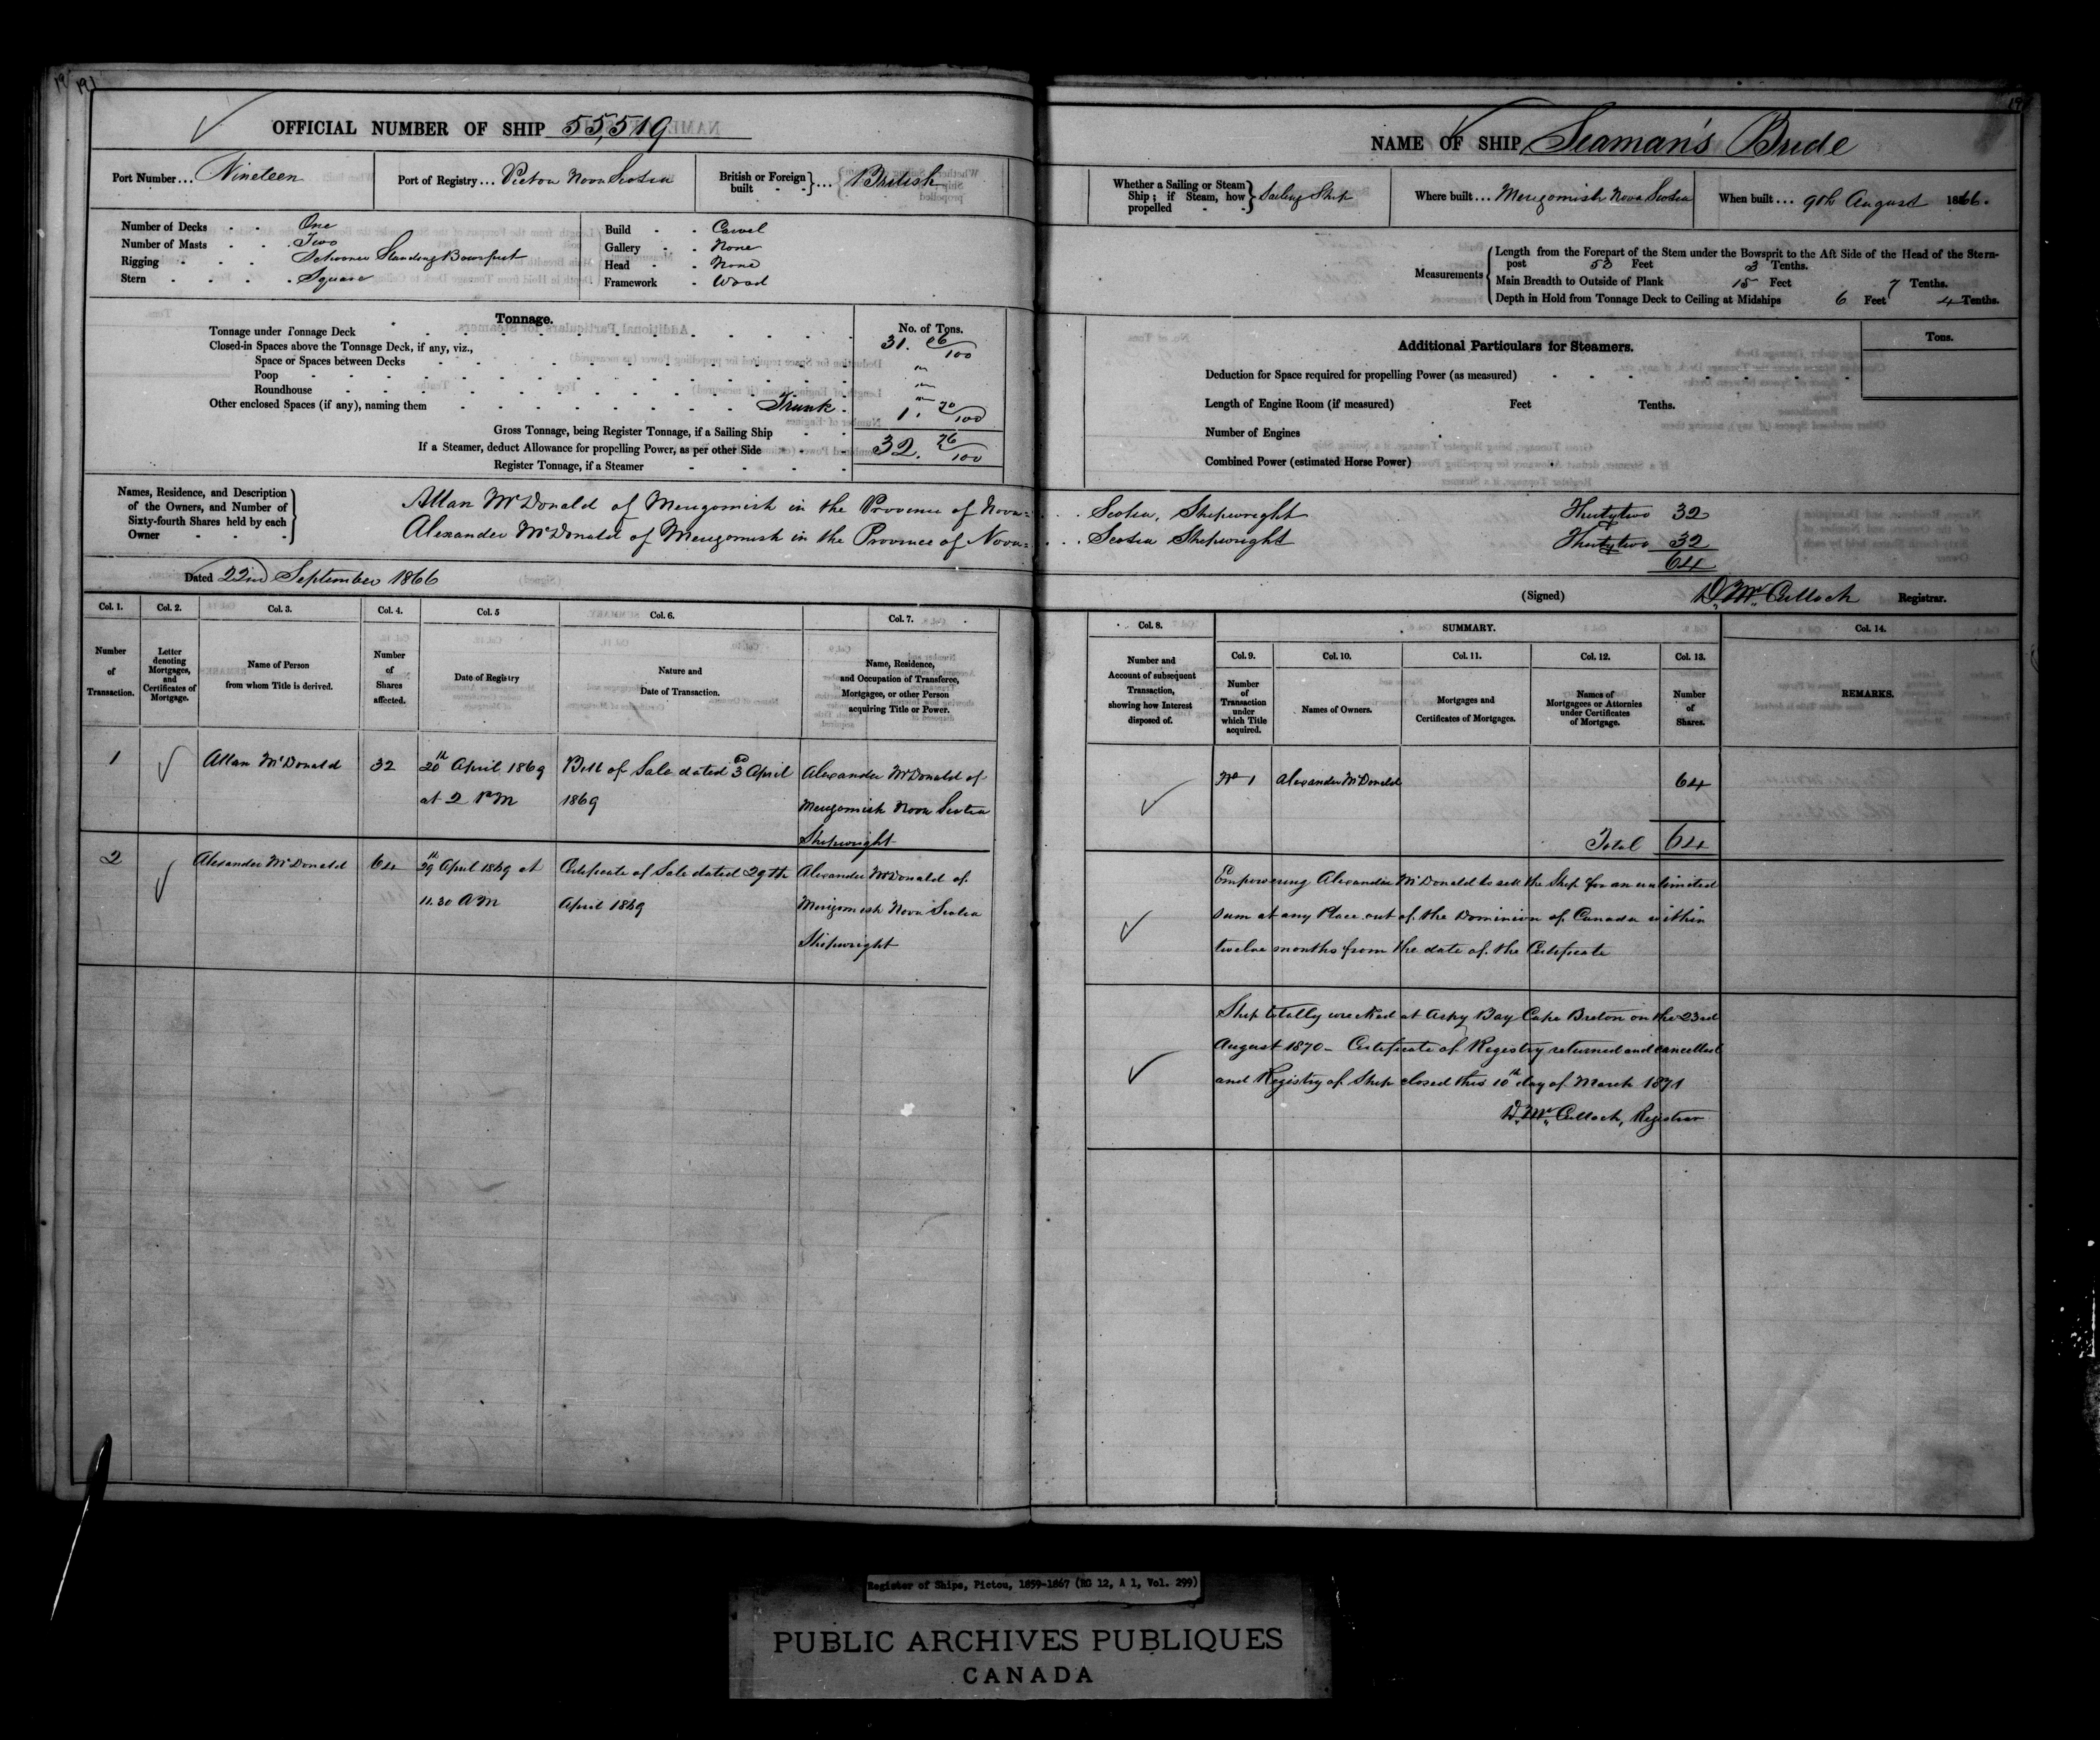 191
OFFICIAL NUMBER OF SHIP 55,519
Port Number ... Nineteen
Port of Registry ... Pictou Nova Scotia
British or Foreign built ... British
Number of Decks One
Number of Masts Two
Rigging Schooner Standing Bowsprit
Stern Square
Build Carvel
Gallery None
Head None
Framework Wood
Tonnage.
No. of Tons.
Tonnage under Tonnage Deck 31. 06/100
Closed-in Spaces above the Tonnage Deck, if any, viz.,
Space or Spaces between Decks "
Poop "
Roundhouse "
Other enclosed Spaces (if any), naming them Trunk 1. 70/100
Gross Tonnage, being Register Tonnage, if a Sailing Ship 32. 76/100
If a Steamer, deduct Allowance for propelling Power, as per other Side
Register Tonnage, if a Steamer
Names, Residence, and Description of the Owners, and Number of Sixty-fourth Shares held by each Owner
Allan McDonald of Merigomish in the Province of Nova=
Alexander McDonald of Merigomish in the Province of Nova=
Dated 22nd September 1866
Col. 1. Col. 2. Col. 3. Col. 4. Col. 5 Col. 6. Col. 7.
Number of Transaction.
Letter denoting Mortgages, and Certificates of Mortgage.
Name of Person from whom Title is derived.
Number of Shares affected.
Date of Registry
Nature and Date of Transaction.
Name, Residence, and Occupation of Transferee, Mortgagee, or other Person acquiring Title or Power.
1 Allan McDonald 32 20th April 1869 Bill of Sale dated 3rd April Alexander McDonald of
at 2 PM 1869 Merigomish Nova Scotia
Shipwright
2 Alexander McDonald 64 29th April 1869 at Certificate of Sale dated 29th Alexander McDonald of
11.30 AM April 1869 Merigomish Nova Scotia
Shipwright
NAME OF SHIP Seaman's Bride
Whether a Sailing or Steam Ship; if Steam, how propelled Sailing Ship
Where built ... Merigomish Nova Scotia
When built ... 9th August 1866.
Measurements
Length from the Forepart of the Stem under the Bowsprit to the Aft Side of the Head of the Stern-
post 53 Feet 3 Tenths.
Main Breadth to Outside of Plank 15 Feet 7 Tenths.
Depth in Hold from Tonnage Deck to Ceiling at Midships 6 Feet 4 Tenths.
Additional Particulars for Steamers.
Tons.
Deduction for Space required for propelling Power (as measured)
Length of Engine Room (if measured) Feet Tenths.
Number of Engines
Combined Power (estimated Horse Power)
Scotia, Shipwright Thirtytwo 32
Scotia Shipwright Thirtytwo 32
64
(Signed) D. McCulloch Registrar.
Col. 8. SUMMARY. Col. 14.
Col. 9. Col. 10. Col. 11. Col. 12. Col. 13.
Number and Account of subsequent Transaction, showing how Interest disposed of.
Number of Transaction under which Title acquired.
Names of Owners.
Mortgages and Certificates of Mortgages.
Names of Mortgagees or Attornies under Certificates of Mortgage.
Number of Shares.
REMARKS.
No 1 Alexander McDonald 64
Total 64
Empowering Alexander McDonald to sell the Ship for an unlimited
sum at any Place out of the Dominion of Canada within
twelve months from the date of the Certificate
Ship totally wrecked at Aspy Bay Cape Breton on the 23rd
August 1870 - Certificate of Registry returned and cancelled
and Registry of Ship closed this 10th day of March 1871
D. McCulloch, Registrar
Register of Ships, Pictou, 1859-1867 (RG 12, A 1, Vol. 299)
PUBLIC ARCHIVES PUBLIQUES
CANADA